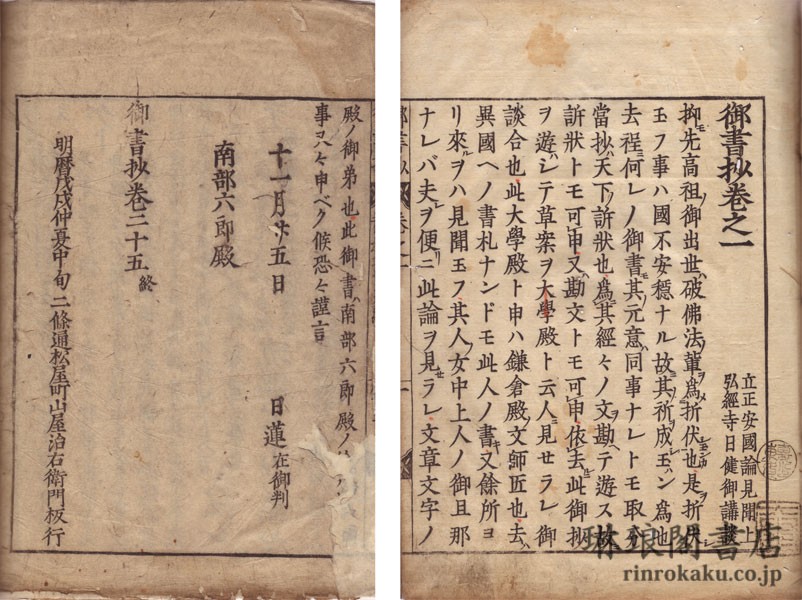 御書抄卷之一
立正安國論見聞上
弘經寺日健御講談
抑先高祖御出世ハ破佛法輩ヲ爲折伏也是折伏シ
玉フ事ハ國不安穩ナル故其祈成玉ハン爲也
去程ニ何レノ御書モ其元意ハ同事ナレトモ取分
當抄ハ天下ノ訴狀也爲其經々ノ文ヲ勘ヘテ遊ス故ニ
訴狀トモ可申又勘文トモ可申依去此御抄
ヲ遊シテ草案ヲ大學殿ト云人ニ見セラレ御
談合也此大學殿ト申ハ鎌倉殿ノ文師匠也去ハ
異國ヘノ書札ナンドモ此人ノ書キ又餘所ヨ
リ來ルヲハ見聞玉フ其人ノ女中上人ノ御旦那
ナレバ夫ヲ便ニ此論ヲ見セラレ文章文字ノ
殿ノ御弟也此御書ハ南部六郎殿ノ
事コハ々申ベク候恐々謹言
十一月廿五日
日蓮在御判
南部六郎殿
御書抄卷二十五終
明曆戊戌仲夏中旬二條通松屋町山屋治右衛門板行
琳琅閣書店
rinrokaku.co.jp